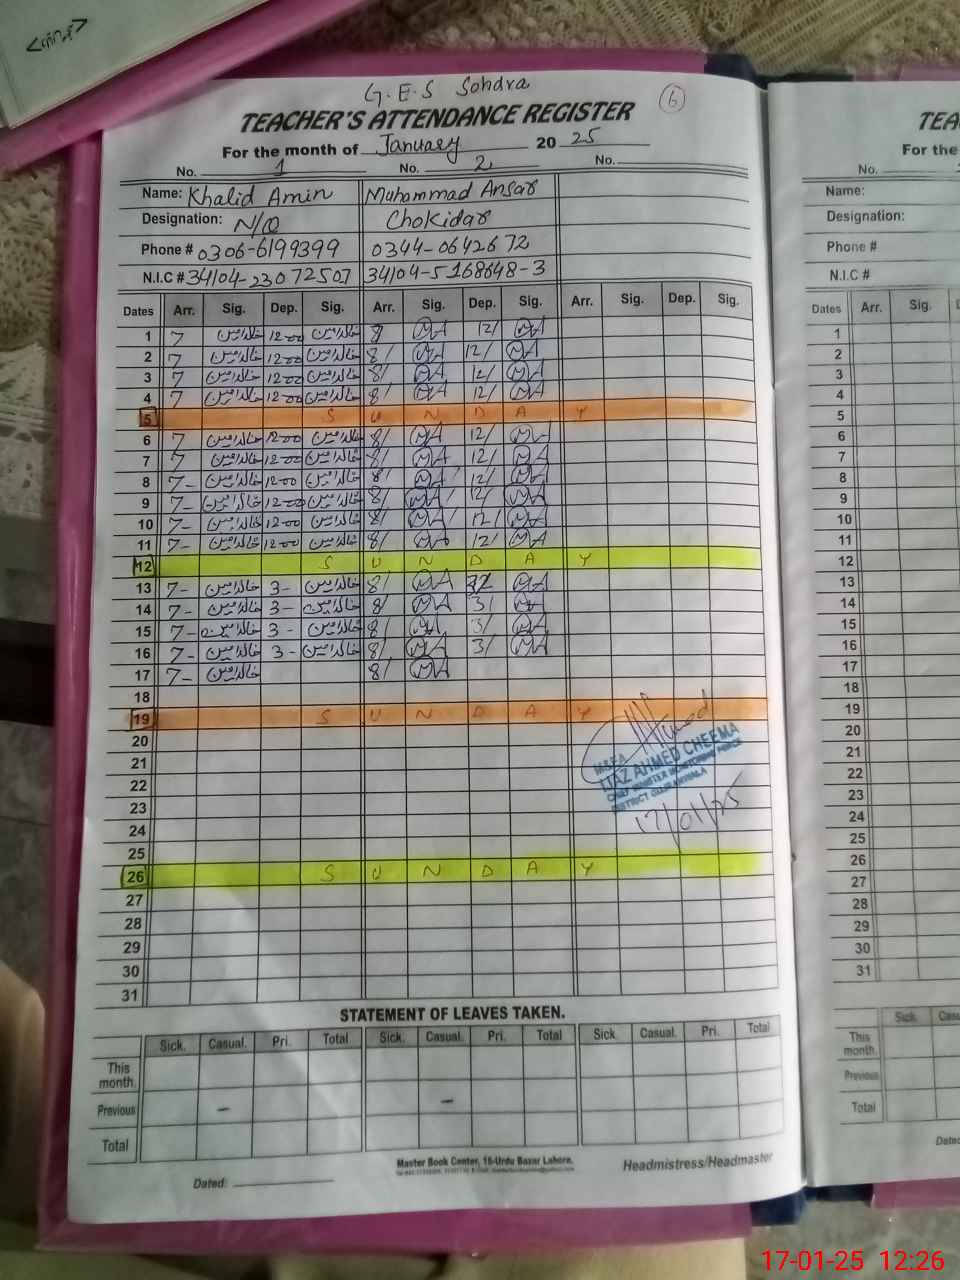 G.E.S Sohdra
6
TEACHER'S ATTENDANCE REGISTER
For the month of January 20 25
No. 1 No. 2 No.
Name: Khalid Amin Muhammad Ansar
Designation: N/Q Chokidar
Phone # 0306-6199399 0344-0642672
N.I.C # 34104-23072507 34104-5168648-3
Dates Arr. Sig. Dep. Sig. Arr. Sig. Dep. Sig. Arr. Sig. Dep. Sig.
1 7 خالد امین 1200 خالد امین 8 MA 12/ MA
2 7 خالد امین 1200 خالد امین 8/ MA 12/ MA
3 7 خالد امین 1200 خالد امین 8/ MA 12/ MA
4 7 خالد امین 1200 خالد امین 8/ MA 12/ MA
5 S U N D A Y
6 7 خالد امین 1200 خالد امین 8/ MA 12/ MA
7 7 خالد امین 1200 خالد امین 8/ MA 12/ MA
8 7- خالد امین 1200 خالد امین 8/ MA 12/ MA
9 7- خالد امین 1200 خالد امین 8/ MA 12/ MA
10 7- خالد امین 1200 خالد امین 8/ MA 12/ MA
11 7- خالد امین 1200 خالد امین 8/ MA 12/ MA
12 S U N D A Y
13 7- خالد امین 3- خالد امین 8/ MA MA
14 7- خالد امین 3- خالد امین 8/ MA 3/ MA
15 7- خالد امین 3- خالد امین 8/ MA 3/ MA
16 7- خالد امین 3- خالد امین 8/ MA 3/ MA
17 7- خالد امین 8/ MA
18
19 S U N D A Y
20
21
22
23
24
25
26 S U N D A Y
27
28
29
30
31
M&EA
IJAZ AHMED CHEEMA
CHIEF MINISTER MONITORING FORCE
DISTRICT GUJRANWALA
17/01/25
STATEMENT OF LEAVES TAKEN.
Sick. Casual. Pri. Total Sick. Casual. Pri. Total Sick. Casual. Pri. Total
This month.
Previous - -
Total
Master Book Center, 16-Urdu Bazar Lahore.
Dated: Headmistress/Headmaster
TEA
For the
No.
Name:
Designation:
Phone #
N.I.C #
Dates Arr. Sig.
1
2
3
4
5
6
7
8
9
10
11
12
13
14
15
16
17
18
19
20
21
22
23
24
25
26
27
28
29
30
31
Sick. Casu
This month.
Previous
Total
Dated
17-01-25 12:26